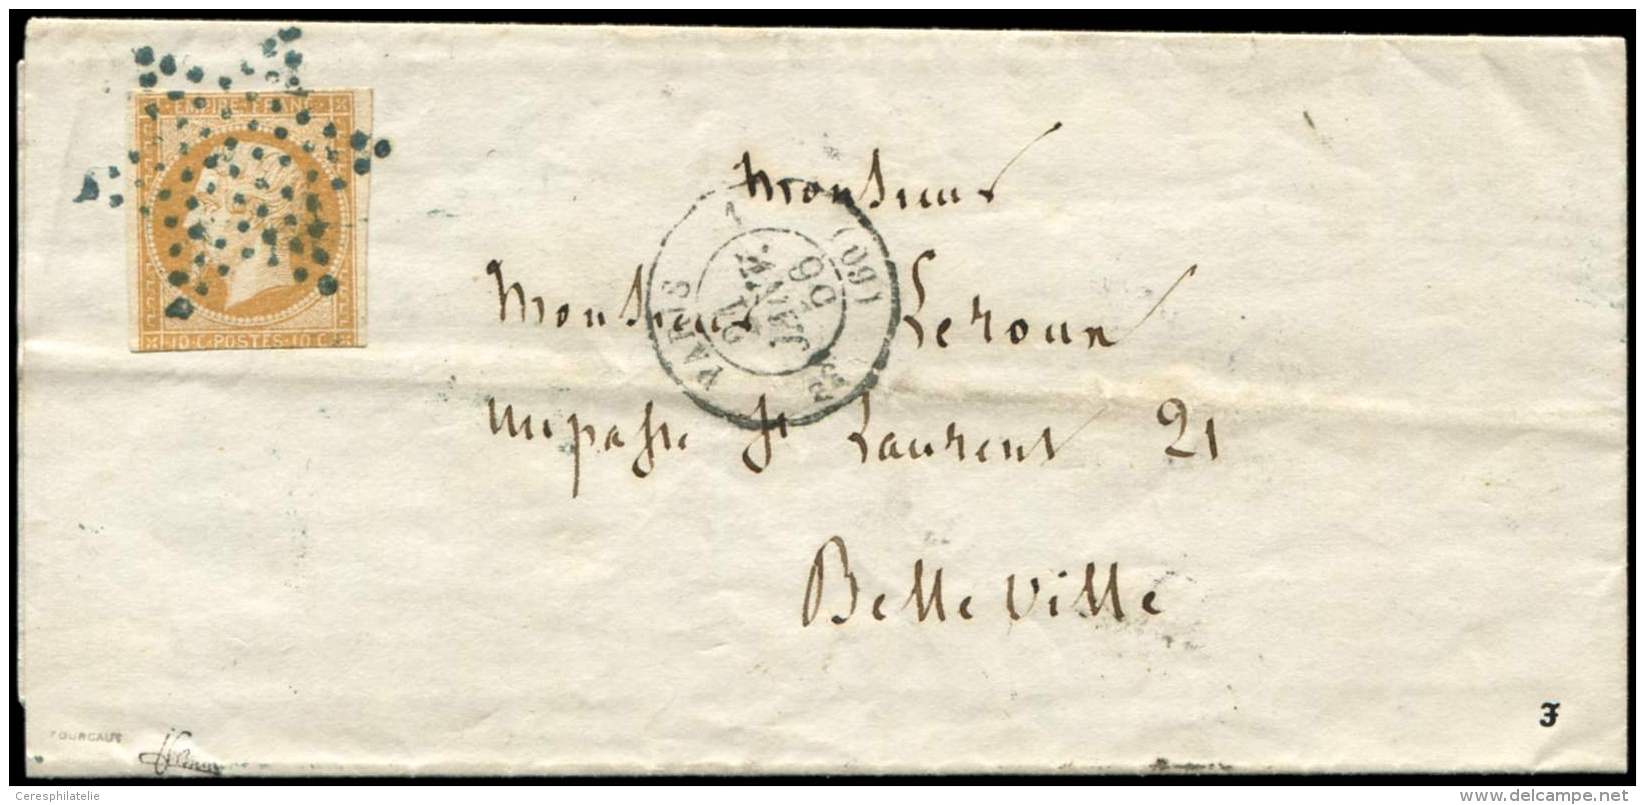 EMPIRE FRANC
10·C·POSTES·10 C
Monsieur
Monsieur Leroux
impasse St Laurent 21
Belleville
PARIS
(60)
21
JANV.
56
Ceresphilatelie
delcampe.net